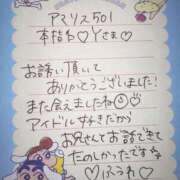 アマリス501
本指名♡Yさま♡
お誘い頂いて
ありがとうございました!
また会えましたね☺♡
アイドル好きだから
お兄さんとお話できて
たのしかったです
♡ふうわ♡